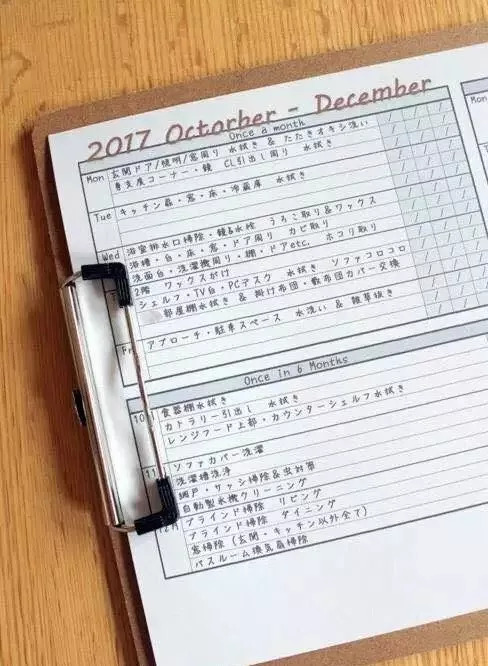 2017 Octorber - December
Once a month
Mon
玄関ドア/照明/窓周り 水拭き & たたきオキシ洗い
身支度コーナー・鏡 CL引出し周り 水拭き
Mon
Tue
キッチン扉・窓・床・冷蔵庫 水拭き
Wed
浴室排水口掃除・鏡&水栓 うろこ取り&ワックス
浴槽・台・床・窓・ドア周り カビ取り
洗面台・洗濯機周り・棚・ドアetc. ホコリ取り
2階 ワックスがけ
シェルフ・TV台・PCデスク 水拭き ソファコロコロ
部屋棚水拭き & 掛け布団・敷布団カバー交換
Fr
アプローチ・駐車スペース 水洗い & 雑草抜き
Once in 6 Months
10
食器棚水拭き
カトラリー引出し 水拭き
レンジフード上部・カウンターシェルフ水拭き
11
ソファカバー洗濯
洗濯槽洗浄
網戸・サッシ掃除&虫対策
自動製氷機クリーニング
12
ブラインド掃除 リビング
ブラインド掃除 ダイニング
窓掃除(玄関・キッチン以外全て)
バスルーム換気扇掃除